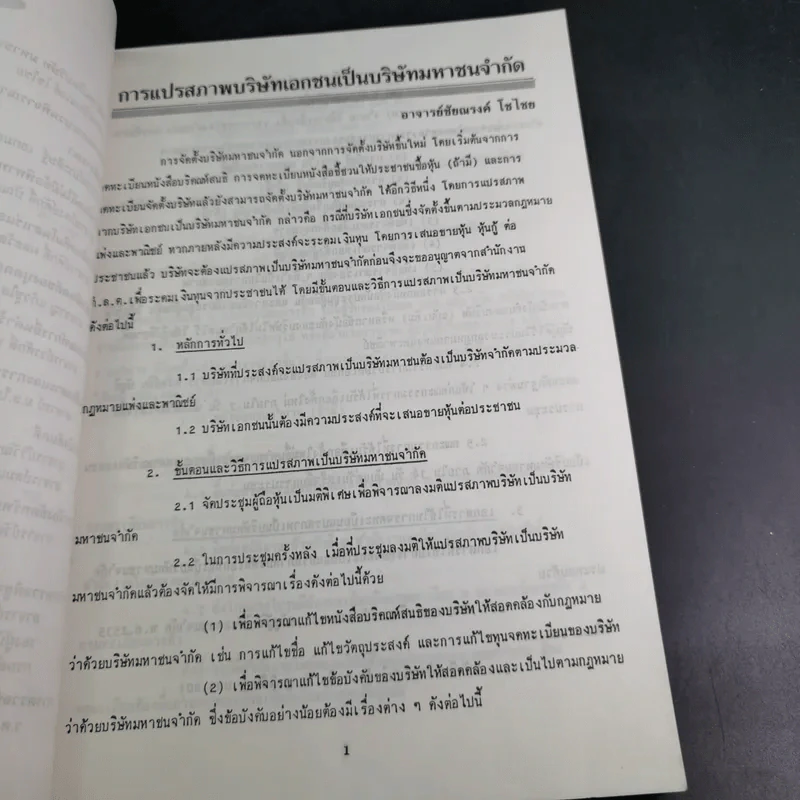 การแปรสภาพบริษัทเอกชนเป็นบริษัทมหาชนจำกัด
อาจารย์ชัยณรงค์ โชไชย
การจัดตั้งบริษัทมหาชนจำกัด นอกจากการจัดตั้งบริษัทขึ้นใหม่ โดยเริ่มต้นจากการ
จดทะเบียนหนังสือบริคณห์สนธิ การจดทะเบียนหนังสือชี้ชวนให้ประชาชนซื้อหุ้น (ถ้ามี) และการ
จดทะเบียนจัดตั้งบริษัทแล้วยังสามารถจัดตั้งบริษัทมหาชนจำกัด ได้อีกวิธีหนึ่ง โดยการแปรสภาพ
จากบริษัทเอกชนเป็นบริษัทมหาชนจำกัด กล่าวคือ กรณีที่บริษัทเอกชนซึ่งจัดตั้งขึ้นตามประมวลกฎหมาย
แพ่งและพาณิชย์ หากภายหลังมีความประสงค์จะระดมเงินทุน โดยการเสนอขายหุ้น หุ้นกู้ ต่อ
ประชาชนแล้ว บริษัทจะต้องแปรสภาพเป็นบริษัทมหาชนจำกัดก่อนจึงจะขออนุญาตจากสำนักงาน
ก.ล.ต.เพื่อระดมเงินทุนจากประชาชนได้ โดยมีขั้นตอนและวิธีการแปรสภาพเป็นบริษัทมหาชนจำกัด
ดังต่อไปนี้
1. หลักการทั่วไป
1.1 บริษัทที่ประสงค์จะแปรสภาพเป็นบริษัทมหาชนต้องเป็นบริษัทจำกัดตามประมวล
กฎหมายแพ่งและพาณิชย์
1.2 บริษัทเอกชนนั้นต้องมีความประสงค์ที่จะเสนอขายหุ้นต่อประชาชน
2. ขั้นตอนและวิธีการแปรสภาพเป็นบริษัทมหาชนจำกัด
2.1 จัดประชุมผู้ถือหุ้นเป็นมติพิเศษเพื่อพิจารณาลงมติแปรสภาพบริษัทเป็นบริษัท
มหาชนจำกัด
2.2 ในการประชุมครั้งหลัง เมื่อที่ประชุมลงมติให้แปรสภาพบริษัทเป็นบริษัท
มหาชนจำกัดแล้วต้องจัดให้มีการพิจารณาเรื่องดังต่อไปนี้ด้วย
(1) เพื่อพิจารณาแก้ไขหนังสือบริคณห์สนธิของบริษัทให้สอดคล้องกับกฎหมาย
ว่าด้วยบริษัทมหาชนจำกัด เช่น การแก้ไขชื่อ แก้ไขวัตถุประสงค์ และการแก้ไขทุนจดทะเบียนของบริษัท
(2) เพื่อพิจารณาแก้ไขข้อบังคับของบริษัทให้สอดคล้องและเป็นไปตามกฎหมาย
ว่าด้วยบริษัทมหาชนจำกัด ซึ่งข้อบังคับอย่างน้อยต้องมีเรื่องต่าง ๆ ดังต่อไปนี้
1